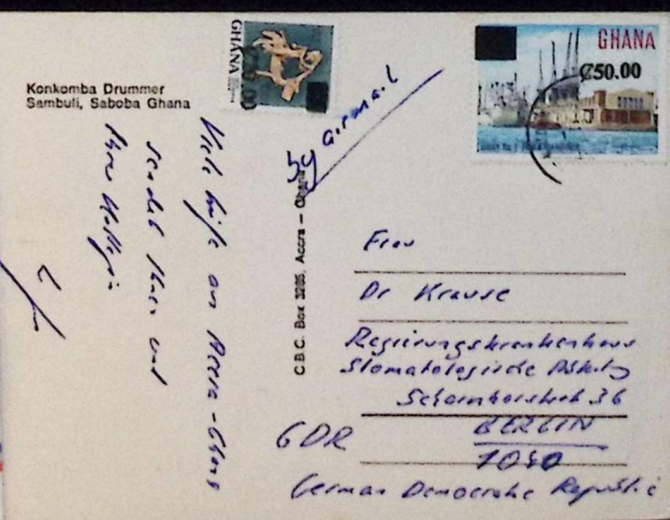 Konkomba Drummer
Sambuli, Saboba Ghana
GHANA
GHANA
₵50.00
by airmail
C.B.C. Box 3285, Accra – Ghana
Viele Grüße aus Accra-Ghana
sendet Ihnen und
Ihre Kollegin
Frau
Dr Krause
Regierungskrankenhaus
Stomatologische
36
GDR BERLIN
1040
German Democratic Republic